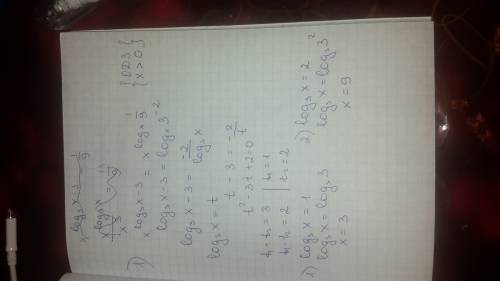 x^{log₃x-3} = 1/9
1) x^{log₃x-3} = x^{logₓ 1/9}
{ОДЗ
{x > 0}
log₃x - 3 = logₓ3⁻²
log₃x - 3 = -2/log₃x
log₃x = t
t - 3 = -2/t
t² - 3t + 2 = 0
t₁ + t₂ = 3 | t₁ = 1
t₁ · t₂ = 2 | t₂ = 2
1) log₃x = 1
log₃x = log₃3
x = 3
2) log₃x = 2
log₃x = log₃3²
x = 9